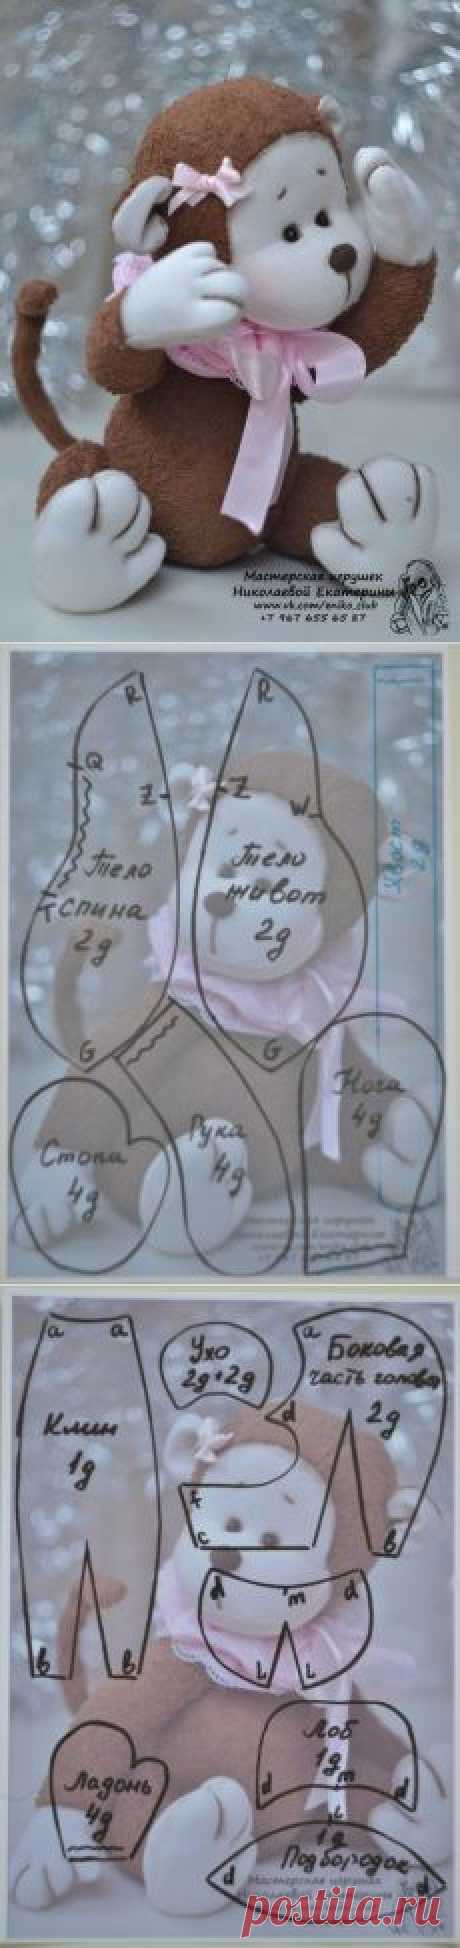 Мастерская игрушек
Николаевой Екатерины
www.vk.com/eniko_club
+7 967 655 65 87
R
R
Q
Z
Z
W
Тело
спина
2д
Тело
живот
2д
Хвост
2д
G
G
Стопа
4д
Рука
4д
Нога
4д
a a
Клин
1д
в в
Ухо
2д+2д
a
Боковая
часть головы
2д
d
к
c
в
d m d
L L
Ладонь
4д
Лоб
1д
d m d
1д
Подбородок
d d
Мастерская игрушек
postila.ru